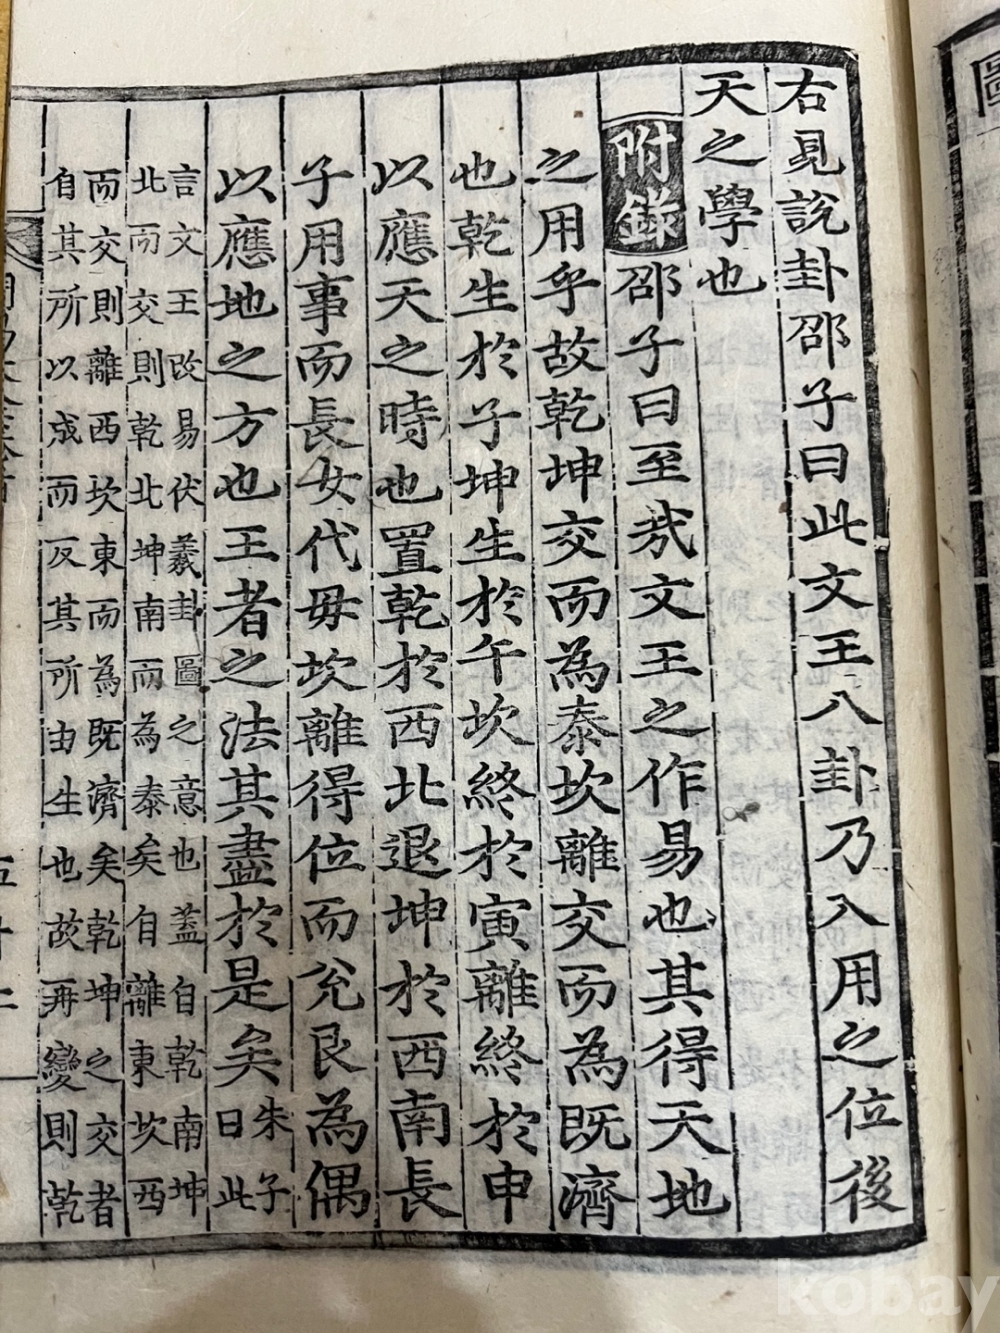 右見說卦邵子曰此文王八卦乃入用之位後
天之學也
附錄 邵子曰至哉文王之作易也其得天地
之用乎故乾坤交而為泰坎離交而為既濟
也乾生於子坤生於午坎終於寅離終於申
以應天之時也置乾於西北退坤於西南長
子用事而長女代母坎離得位而兌艮為偶
以應地之方也王者之法其盡於是矣
朱子
曰此
言文王改易伏羲卦圖之意也蓋自乾南坤
北而交則乾北坤南而為泰矣自離東坎西
而交則離西坎東而為既濟矣乾坤之交者
自其所以成而反其所由生也故再變則乾
圖
kobay